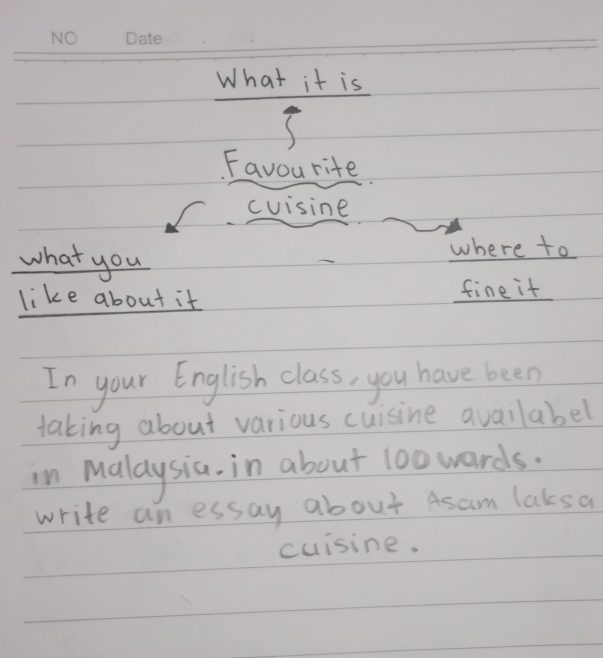 NO Date
What it is
Favourite
cuisine
what you
like about it
where to
fine it
In your English class, you have been
taking about various cuisine availabel
in Malaysia. in about 100 wards.
write an essay about Asam laksa
cuisine.